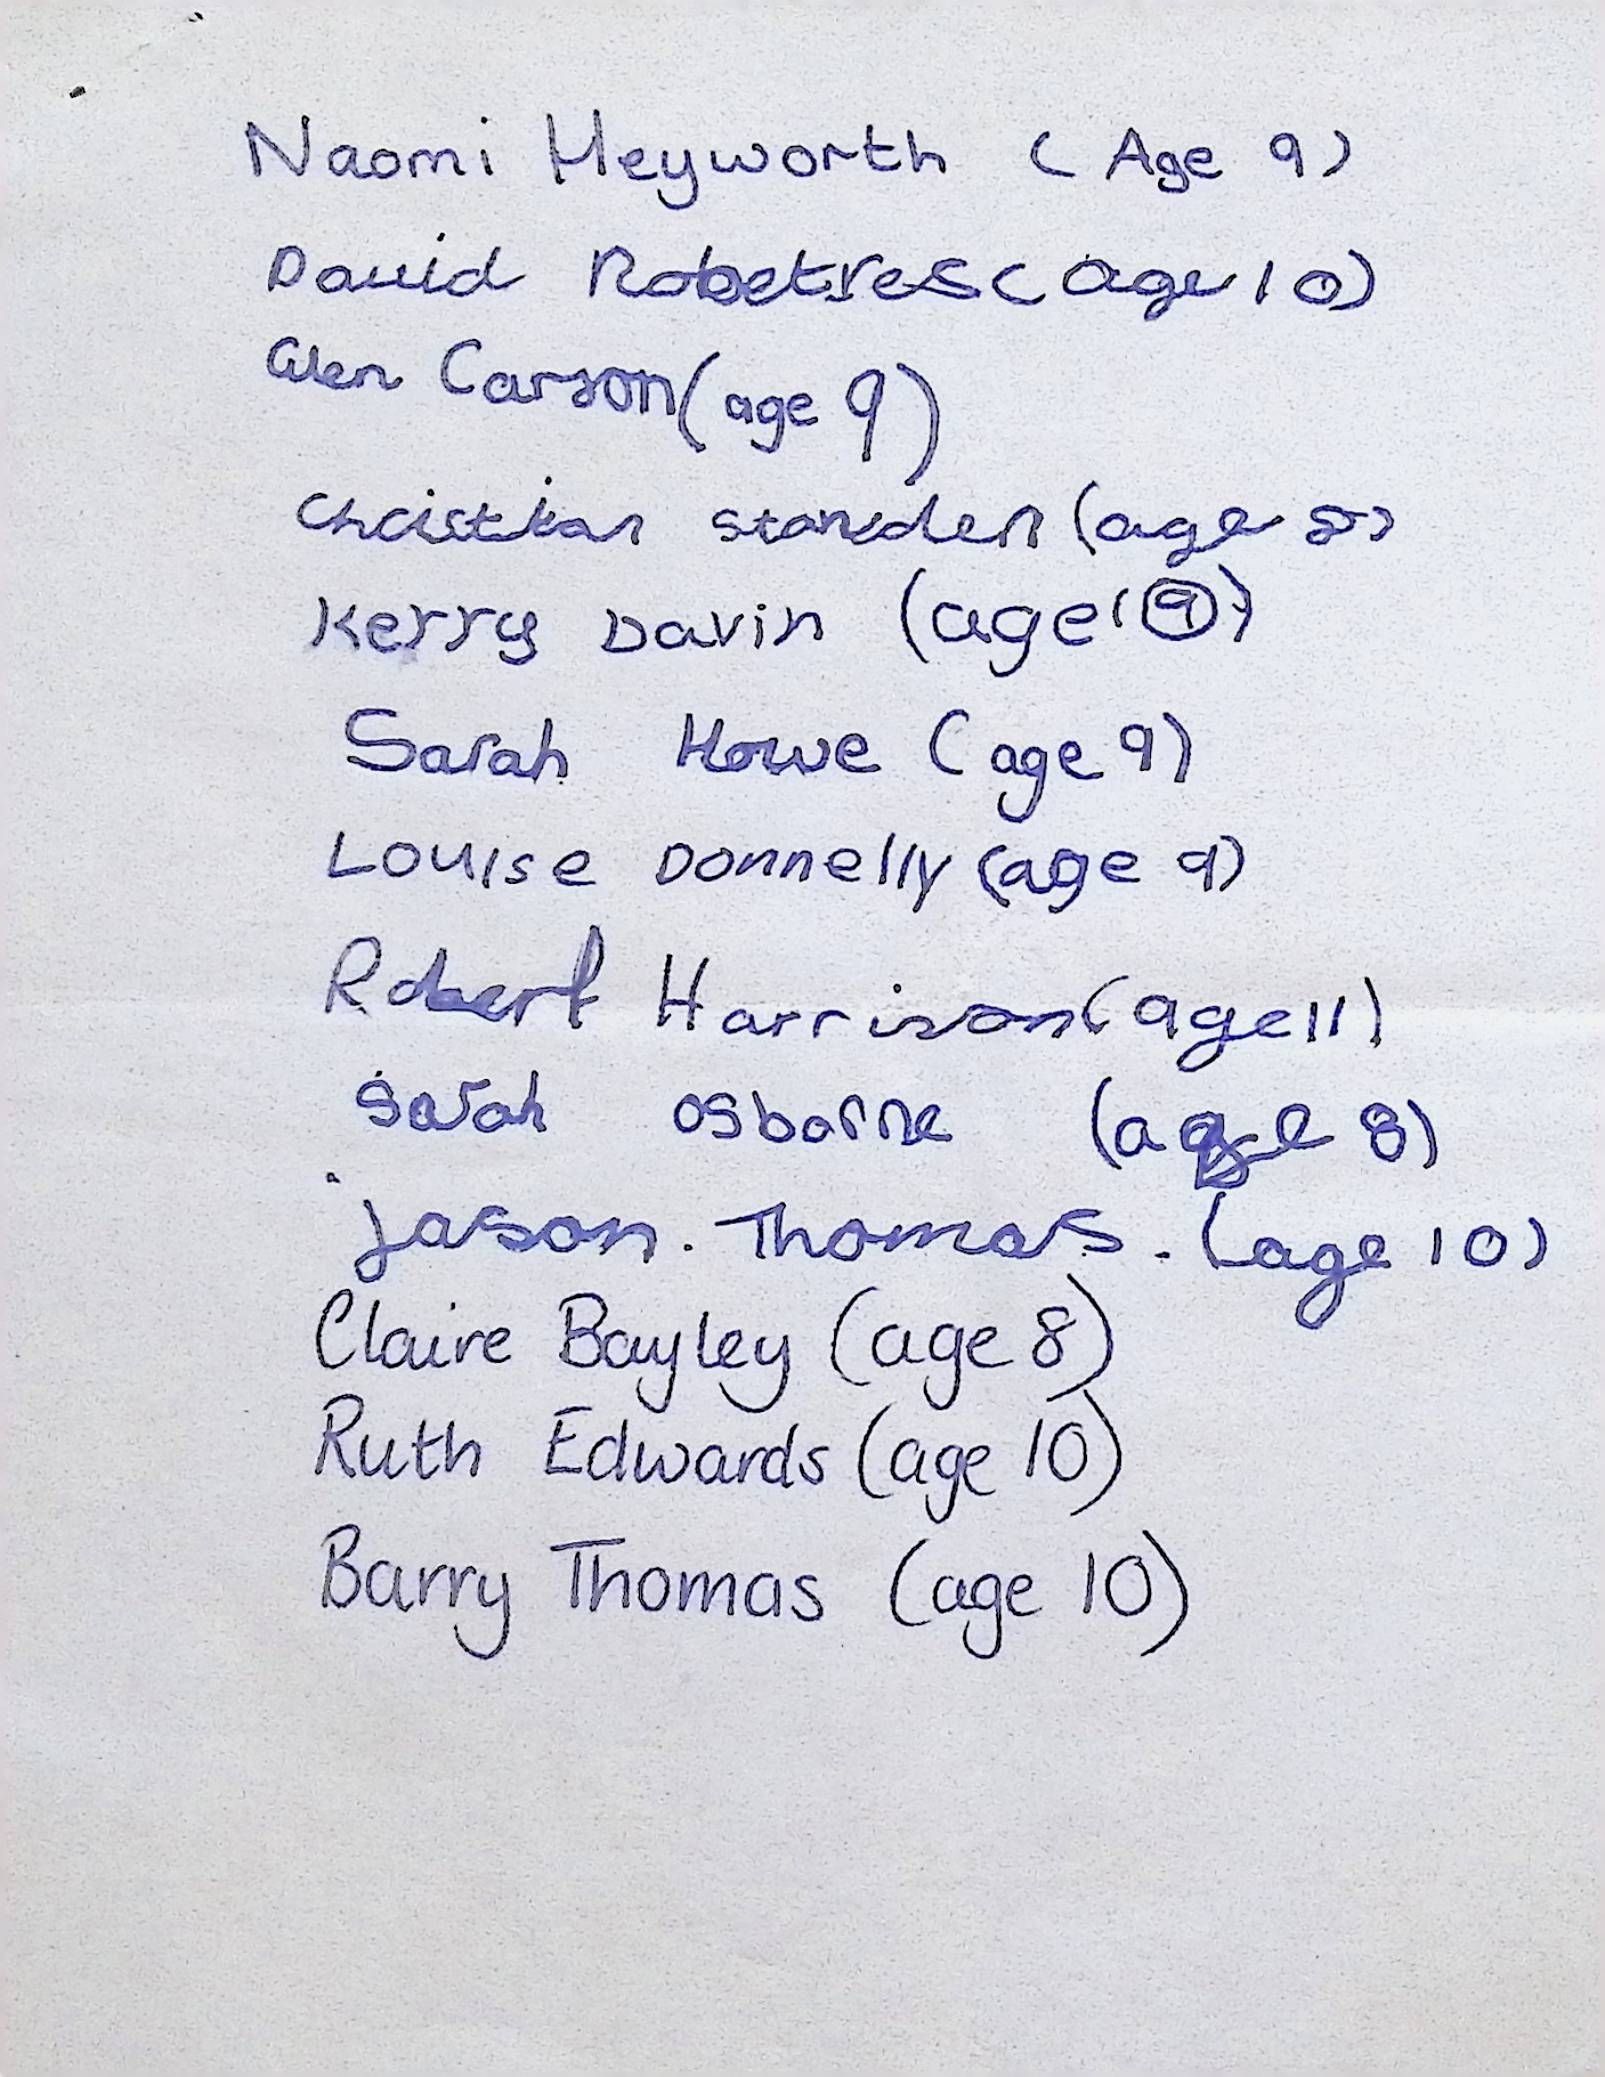 Naomi Heyworth (Age 9)
David Robetres (age 10)
Glen Carson (age 9)
Christian standen (age 8)
Kerry Davin (age 9)
Sarah Howe (age 9)
Louise Donnelly (age 9)
Robert Harrison (age 11)
Sarah Osborne (age 8)
Jason. Thomas. (age 10)
Claire Bayley (age 8)
Ruth Edwards (age 10)
Barry Thomas (age 10)